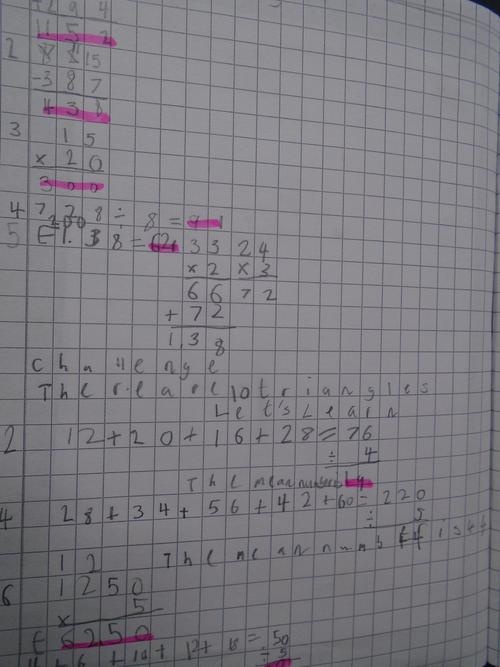 2 9 4
11 5 2
2
- 3 8 7
4 3 8
3 1 5
x 2 0
3 0 0
4 7 2 8 ÷ 8 = 9 1
5 3 3 2 4
x 2 x 3
6 6 7 2
+ 7 2
1 3 8
Challenge
There are 10 triangles
Let's Learn
2 12+20+16+28=76
÷ 4
The mean number
4 28+34+56+42+60=220
÷ 5
12 The mean
6 1250
x 5
£6250
= 50
÷ 5